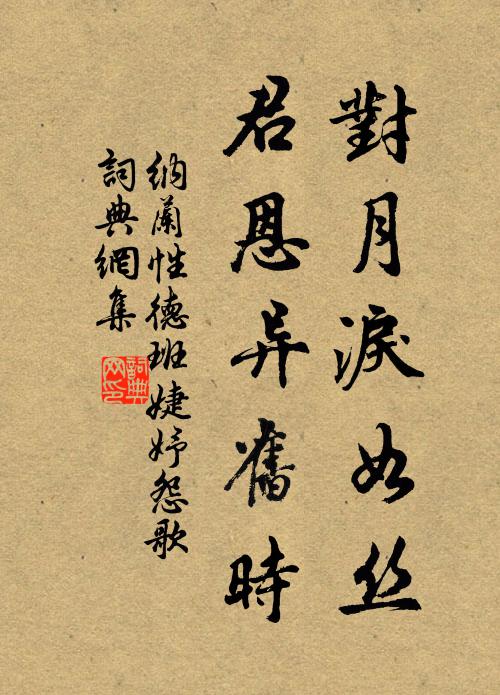 對月淚如丝
君恩异舊時
纳蘭性德班婕妤怨歌
詞典網集
詞典
网印